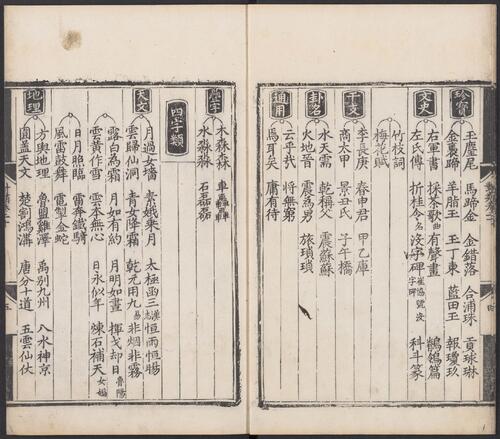 珍寶
玉麈尾 馬蹄金 金錯落 合浦珠 貢球琳
金褭蹄 羊脂玉 玉丁東 藍田玉 報瓊玖
文史
右軍書 採茶歌曲 有聲畫 鶺鴒篇
左氏傳 折桂令名 沒字碑崔協號沒字碑 科斗篆
竹枝詞
梅花賦
干支
李長庚 春申君 甲乙庫
商太甲 景丑氏 子午橋
卦名
水天需 乾稱父 震蘇蘇
火地晉 震爲男 旅瑣瑣
通用
云乎哉 將無窮
焉耳矣 庸有待
疊字
木森森 車轟轟
水淼淼 石磊磊
四字類
天文
月過女墻 素娥乘月 太極函三漢志 恒雨恒暘
雲歸仙洞 青女降霜 乾元用九易 非烟非霧
露白為霜 月如有約 月明如晝 揮戈却日魯陽
雲黃作雪 雲本無心 日永似年 煉石補天女媧
日月照臨 雷奔鐵騎
風雲鼓舞 電掣金蛇
地理
方輿地理 魯盟雞澤 禹別九州 八水神京
圓蓋天文 楚割鴻溝 唐分十道 五雲仙仗